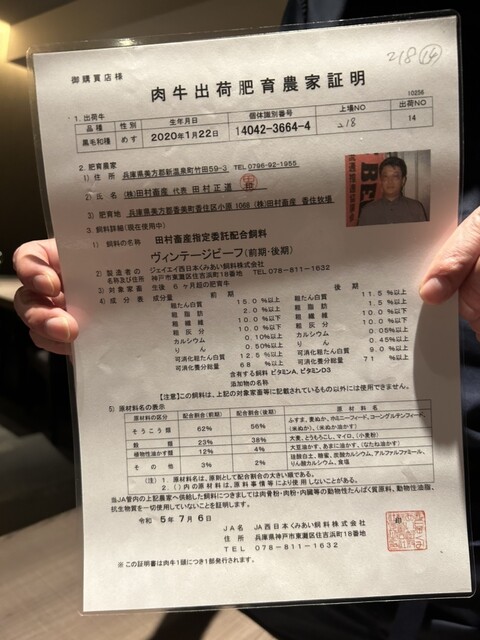 御購買店様
218 ⑭
肉牛出荷肥育農家証明
10256
1. 出荷牛
品種 性別 生年月日 個体識別番号 上場NO 出荷NO
黒毛和種 めす 2020年1月22日 14042-3664-4 218 14
2. 肥育農家
1) 住所 兵庫県美方郡新温泉町竹田59-3 TEL0796-92-1955
2) 氏名 (株)田村畜産 代表 田村正道 印
3) 肥育地 兵庫県美方郡香美町香住区小原1068 (株)田村畜産 香住牧場
3. 飼料詳細(現在使用中)
1) 飼料の名称 田村畜産指定委託配合飼料
ヴィンテージビーフ(前期・後期)
2) 製造者の名称及び住所 ジェイエイ西日本くみあい飼料株式会社
神戸市東灘区住吉浜町18番地 TEL 078-811-1632
3) 対象家畜 生後6ヶ月超の肥育牛
4) 成分表 成分量 前期 後期
粗たん白質 15.0%以上 粗たん白質 11.5%以上
粗脂肪 2.0%以上 粗脂肪 1.5%以上
粗繊維 10.0%以下 粗繊維 10.0%以下
粗灰分 10.0%以下 粗灰分 10.0%以下
カルシウム 0.10%以上 カルシウム 0.05%以上
りん 0.50%以上 りん 0.45%以上
可消化粗たん白質 12.5%以上 可消化粗たん白質 9.0%以上
可消化養分総量 68%以上 可消化養分総量 71%以上
含有する飼料添加物の名称 ビタミンA、ビタミンD3
【注意】この飼料は、上記の対象家畜等に記載されているもの以外には使用できません。
5) 原材料名の表示
原材料の区分 配合割合(前期) 配合割合(後期) 原材料名
そうこう類 62% 56% ふすま、麦ぬか、ホミニーフィード、コーングルテンフィード、(米ぬか)、(米ぬか油かす)
穀類 23% 38% 大麦、とうもろこし、マイロ、(小麦粉)
植物性油かす類 12% 4% 大豆油かす、あまに油かす、(なたね油かす)
その他 3% 2% 糖蜜、炭酸カルシウム、アルファルファミール、りん酸カルシウム、食塩
(注) 1. 原材料名は、原則として配合割合の大きい順である。
2. ( )内の原材料は、原料事情等により使用しないことがある。
当JA管内の上記農家へ供給した飼料につきましては肉骨粉・肉粉・内臓等の動物性たんぱく質原料、動物性油脂、
抗生物質を一切使用していないことを証明します。
令和 5年7月6日
JA名 JA西日本くみあい飼料株式会社
住所 兵庫県神戸市東灘区住吉浜町18番地
TEL 078-811-1632
印
※この証明書は肉牛1頭につき1部発行されます。